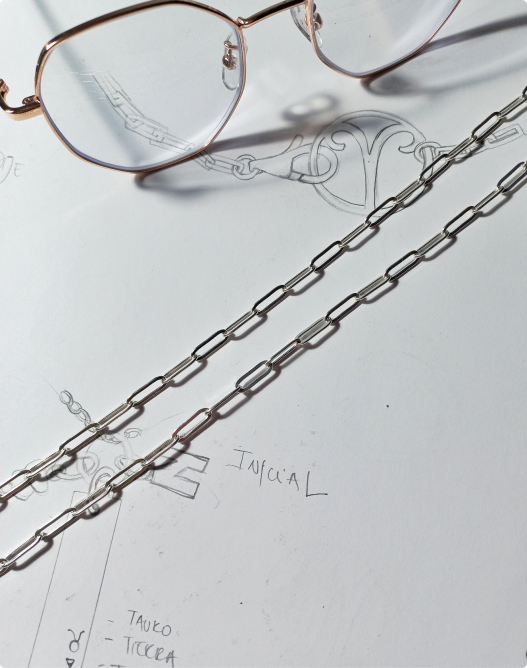 INICIAL
- TAURO
- TIERRA